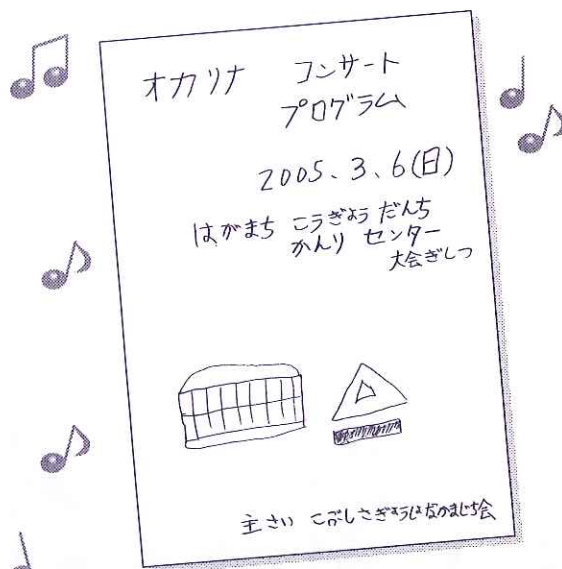 オカリナ コンサート
プログラム
2005、3、6(日)
はがまち こうぎょう だんち
かんり センター
大会ぎしつ
主さい こぶしさぎょうしょなかまたち会